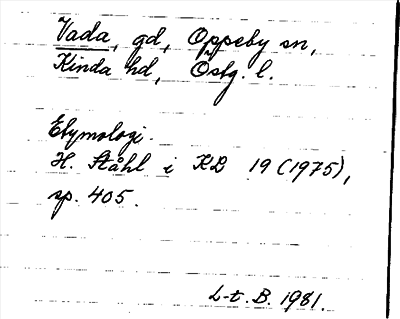 Vada, gd, Oppeby sn,
Kinda hd, Östg. l.
Etymologi.
H. Ståhl i KL 19 (1975),
sp. 405.
L-t. B. 1981.